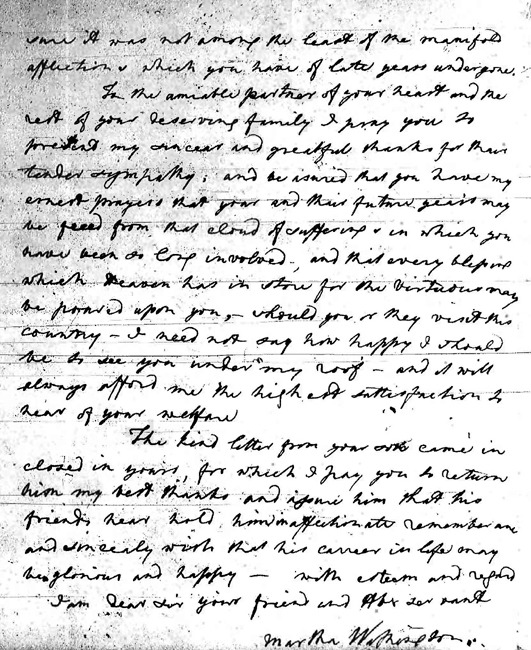 sure it was not among the least of the manifold
afflictions which you have of late years undergone.
To the amiable partner of your heart and the
rest of your deserving family I pray you to
present my sincear and greatful thanks for their
tender sympathy; and be assured that you have my
ernest prayers that your and their future years may
be freed from that cloud of sufferings in which you
have been so long involved, and that every blessing
which Heaven has in store for the virtuous may
be poured upon you, – should you or they visit this
country – I need not say how happy I should
be to see you under my roof – and it will
always afford me the highest satisfaction to
hear of your welfare
The kind letter from your son came in
closed in yours, for which I pray you to return
him my best thanks and assure him that his
friends hear hold him in affectionate rememberance
and sincealy wish that his career in life may
be glorious and happy – with esteem and regard
I am dear Sir your friend and Hbe servant
Martha Washington